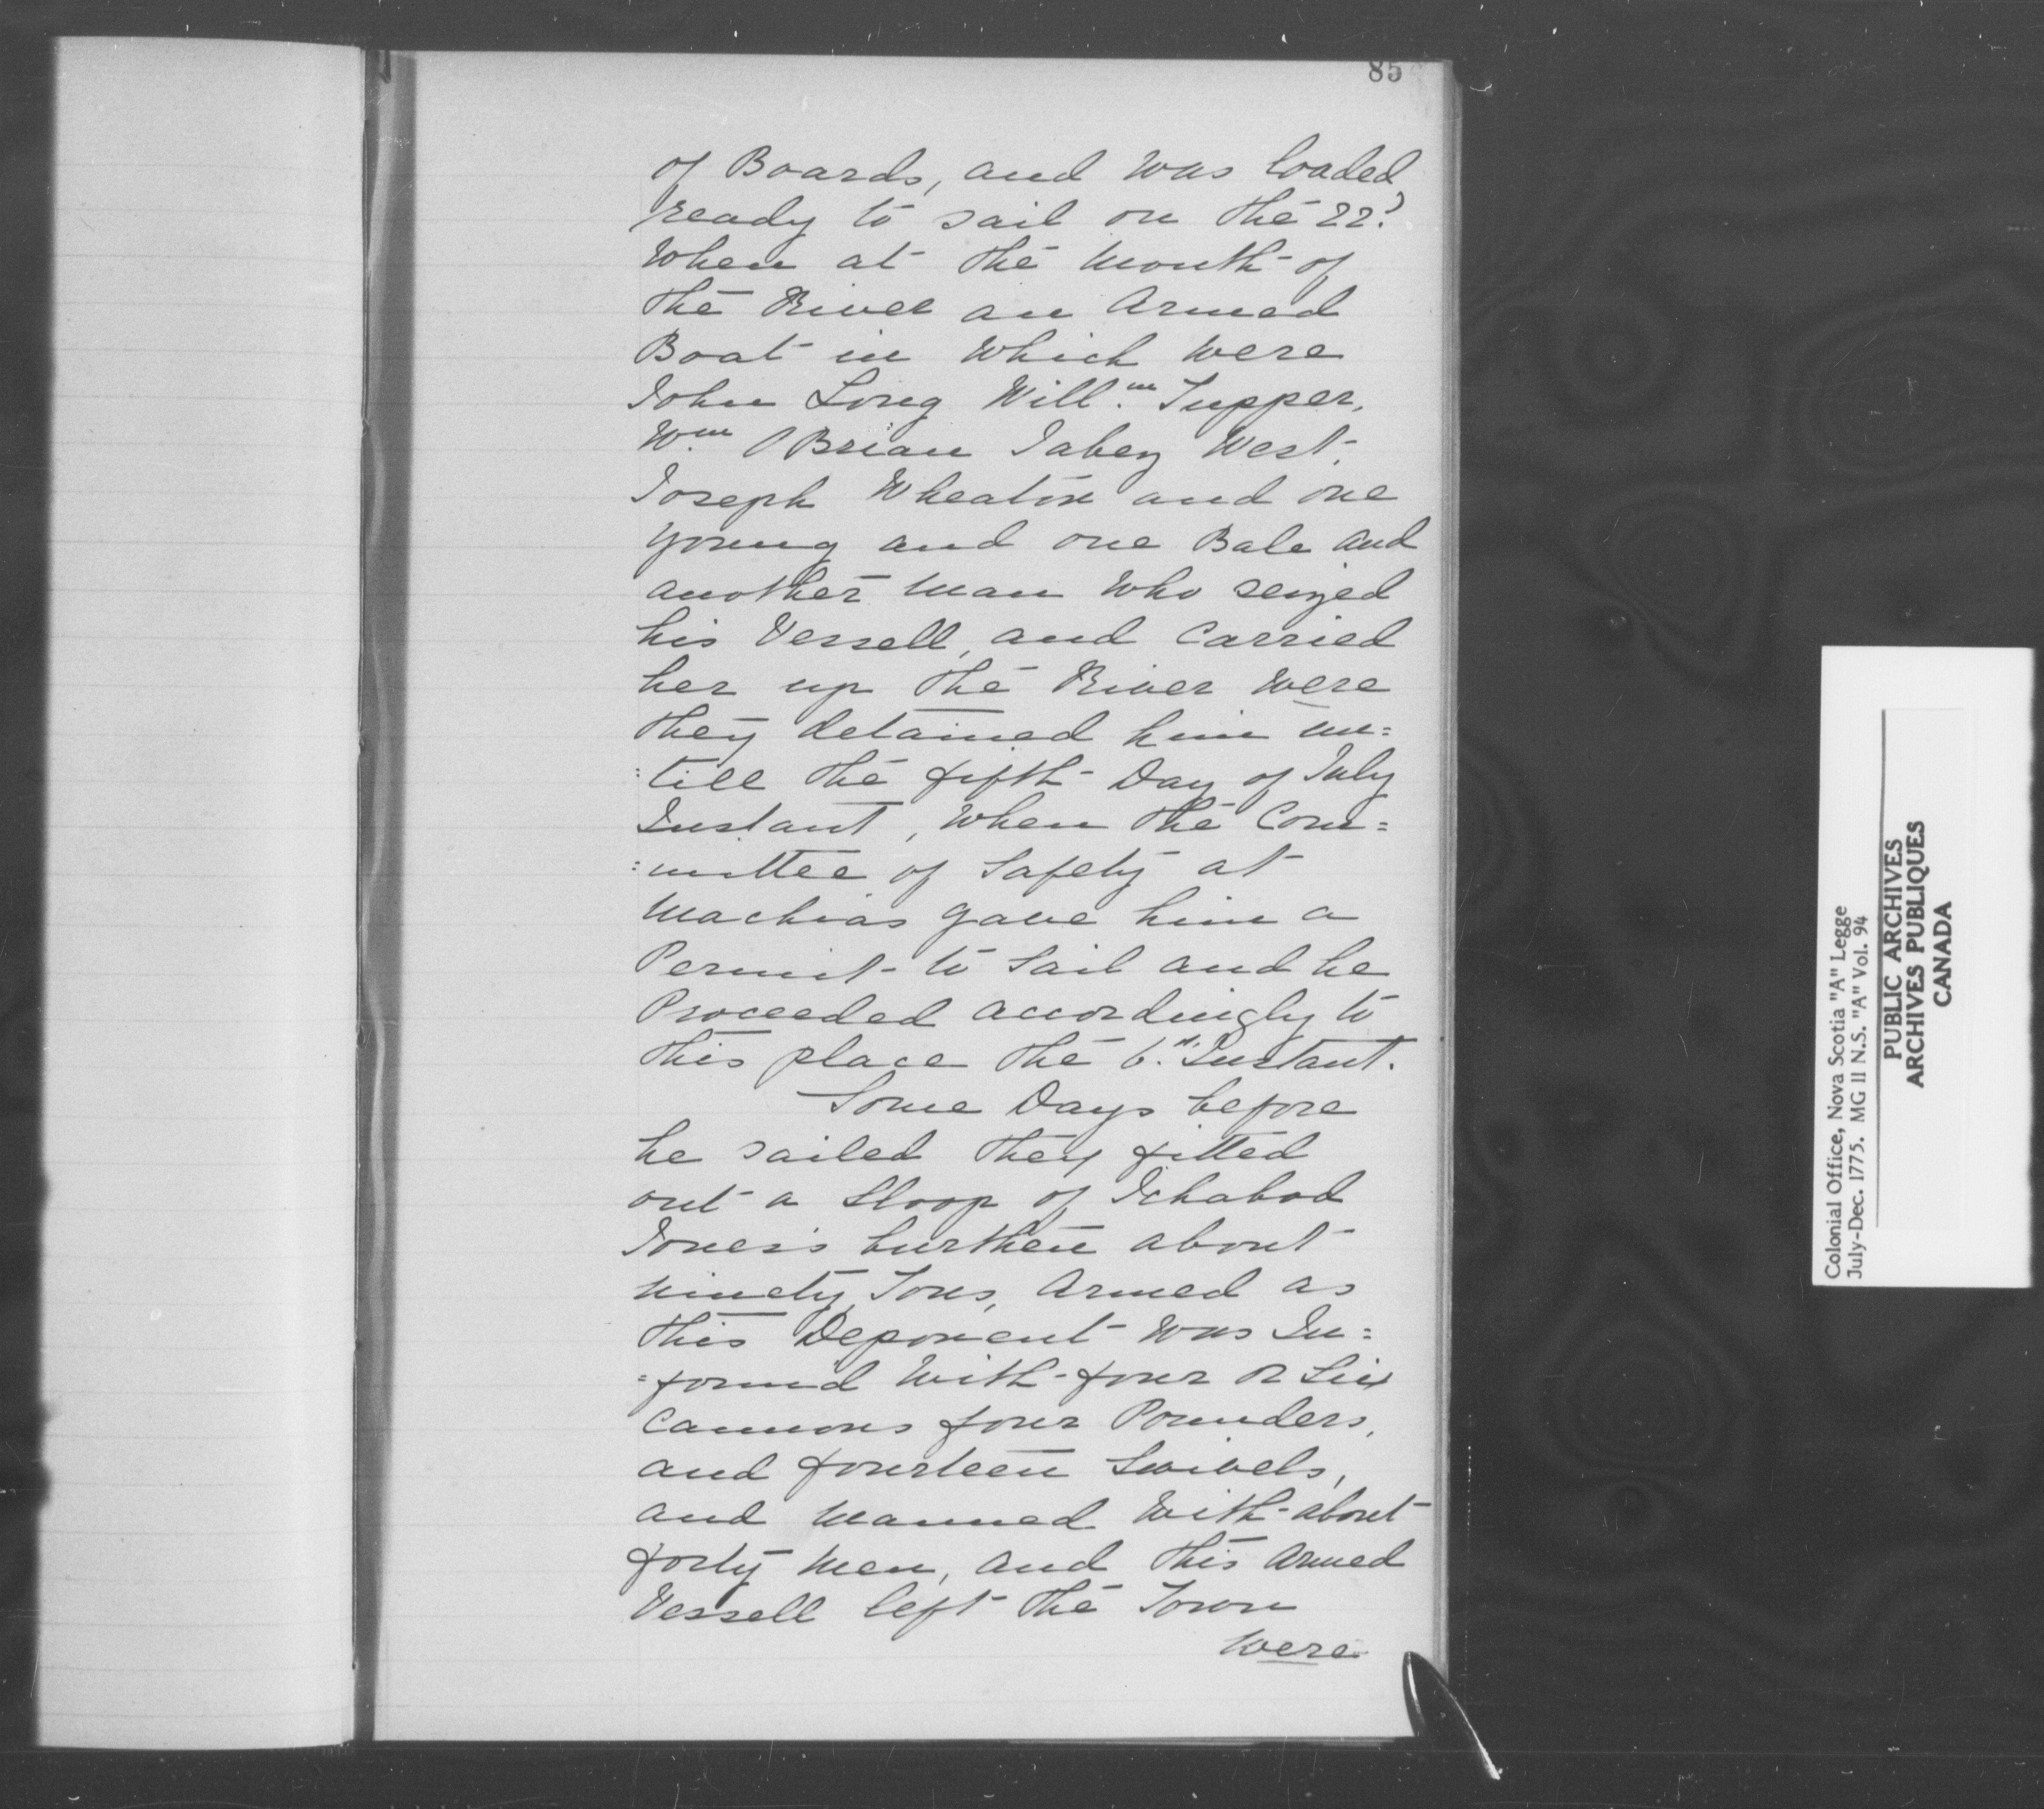 85
of Boards, and was loaded
ready to sail on the 22d
When at the Mouth of
the River an Armed
Boat in Which were
John Long Will.m Tupper,
W.m OBrian Jabez West,
Joseph Wheaton and one
Young and one Bale and
another Man Who seized
his Vessell, and Carried
her up the River were
they detained him un=
=till the fifth Day of July
Instant, When the Com=
=mittee of Safety at
Machias gave him a
Permit to Sail and he
Proceeded accordingly to
this place the 6.th Instant.
Some Days before
he sailed they fitted
out a Sloop of Ichabod
Jones's burthen about
Ninety Tons, Armed as
this Deponent was In=
=formd With four or Six
Cannons four Pounders,
and fourteen Swivels,
and Manned With about
forty Men, and this Armed
Vessell left the Town
were
Colonial Office, Nova Scotia "A" Legge
July-Dec. 1775. MG 11 N.S. "A" Vol. 94
PUBLIC ARCHIVES
ARCHIVES PUBLIQUES
CANADA